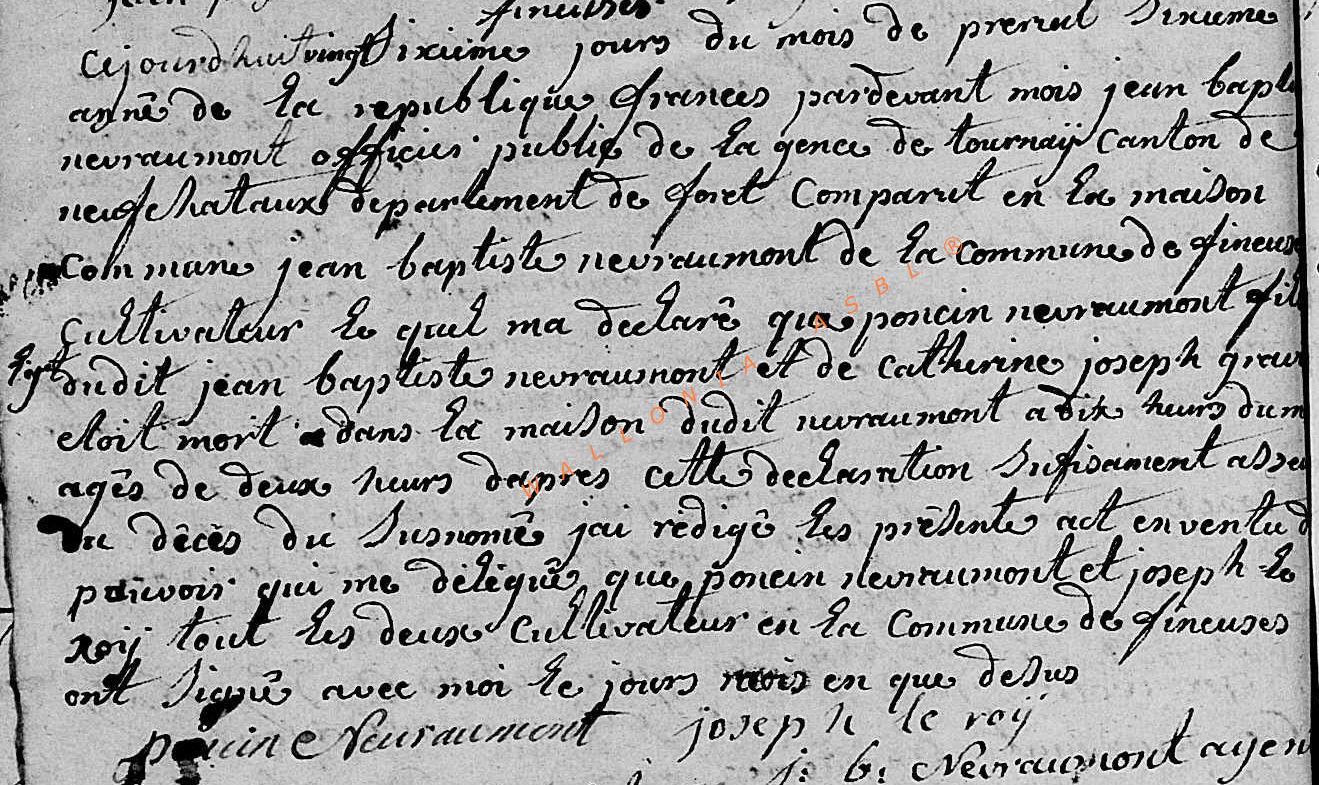 fineuses
Cejourdhuit vingt Sixième jours du mois de prereal Sixieme
année de la republique frances pardevant mois jean bapti
nevraumont officier public de la gence de tournaÿ Canton de
neufchataux departement de foret Comparut en la maison
Commune jean baptiste nevraumont de la commune de fineuse
Cultivateur le quel ma declarê que poncin nevraumont fils
dudit jean baptiste nevraumont et de catherine joseph grav
etoit mort dans la maison dudit nevraumont a dix heurs du m
agês de deux heurs dapres cette declaration Sufisament asseu
du dêcès du Susnomê jai rêdigê les prêsente act en vertu d
pouvoir qui me dêlêguê que poncin nevraumont et joseph le
roÿ tout les deux Cultivateur en la Commune de fineuses
ont Signê avec moi le jours mois en que desus
poncin Nevraumont joseph le roÿ
j: b: Nevraumont agen
WALLONIA ASBL®